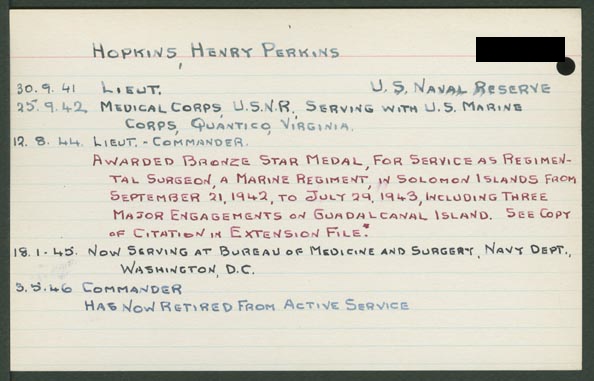 HOPKINS, HENRY PERKINS
30.9.41 LIEUT. U.S. NAVAL RESERVE
25.9.42 MEDICAL CORPS, U.S.N.R., SERVING WITH U.S. MARINE
CORPS, QUANTICO, VIRGINIA.
12.8.44. LIEUT.-COMMANDER.
AWARDED BRONZE STAR MEDAL, FOR SERVICE AS REGIMEN-
TAL SURGEON, A MARINE REGIMENT, IN SOLOMON ISLANDS FROM
SEPTEMBER 21, 1942, TO JULY 29, 1943, INCLUDING THREE
MAJOR ENGAGEMENTS ON GUADALCANAL ISLAND. SEE COPY
OF CITATION IN EXTENSION FILE.
18.1.45. NOW SERVING AT BUREAU OF MEDICINE AND SURGERY, NAVY DEPT.,
WASHINGTON, D.C.
3.5.46 COMMANDER
HAS NOW RETIRED FROM ACTIVE SERVICE